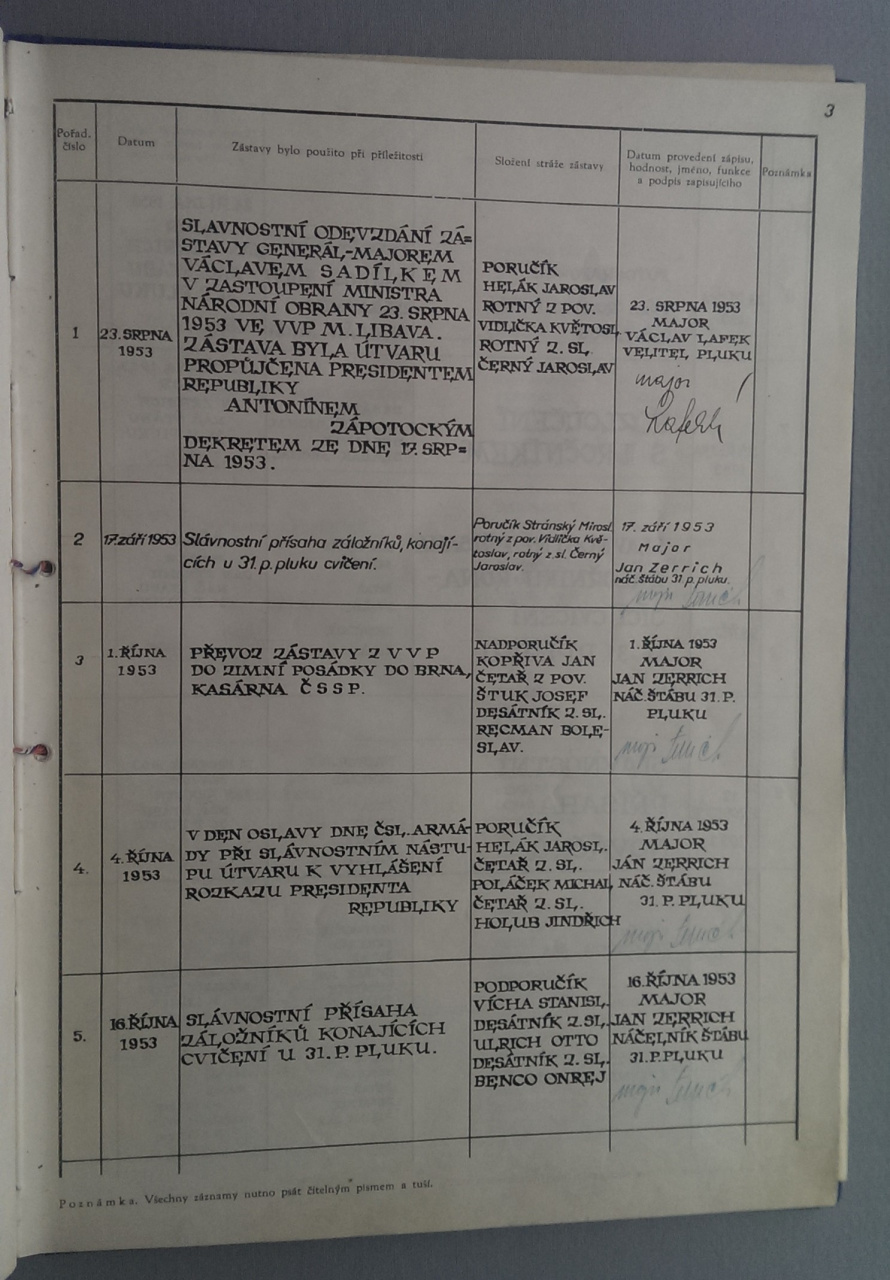 3
Pořad.
číslo
Datum
Zástavy bylo použito při příležitosti
Složení stráže zástavy
Datum provedení zápisu,
hodnost, jméno, funkce
a podpis zapisujícího
Poznámka
1
23. SRPNA
1953
SLAVNOSTNÍ ODEVZDÁNÍ ZÁ=
STAVY GENERÁL-MAJOREM
VÁCLAVEM SADÍLKEM
V ZASTOUPENÍ MINISTRA
NÁRODNÍ OBRANY 23. SRPNA
1953 VE VVP M. LIBAVA.
ZÁSTAVA BYLA ÚTVARU
PROPŮJČENA PRESIDENTEM
REPUBLIKY
ANTONÍNEM
ZÁPOTOCKÝM
DEKRETEM ZE DNE 17. SRP=
NA 1953.
PORUČÍK
HELÁK JAROSLAV
ROTNÝ Z POV.
VIDLIČKA KVĚTOSL.
ROTNÝ Z. SL.
ČERNÝ JAROSLAV
23. SRPNA 1953
MAJOR
VÁCLAV LAFEK
VELITEL PLUKU
major
Lafek
2
17. září 1953
Slávnostní přísaha záložníků, konají-
cích u 31. p. pluku cvičení.
Poručík Stránský Mirosl.
rotný z pov. Vidlička Kvě-
toslav, rotný z. sl. Černý
Jaroslav.
17. září 1953
Major
Jan Zerrich
náč. štábu 31. p. pluku.
mjr. Zerrich
3
1. ŘÍJNA
1953
PŘEVOZ ZÁSTAVY Z VVP
DO ZIMNÍ POSÁDKY DO BRNA,
KASÁRNA ČSSP.
NADPORUČÍK
KOPŘIVA JAN
ČETAŘ Z POV.
ŠTUK JOSEF
DESÁTNÍK Z. SL.
RECMAN BOLE-
SLAV.
1. ŘÍJNA 1953
MAJOR
JAN ZERRICH
NÁČ. ŠTÁBU 31. P.
PLUKU
mjr. Zerrich
4.
4. ŘÍJNA
1953
V DEN OSLAVY DNE ČSL. ARMÁ-
DY PŘI SLÁVNOSTNÍM NÁSTU-
PU ÚTVARU K VYHLÁŠENÍ
ROZKAZU PRESIDENTA
REPUBLIKY
PORUČÍK
HELÁK JAROSL.
ČETAŘ Z. SL.
POLÁČEK MICHAL
ČETAŘ Z. SL.
HOLUB JINDŘICH
4. ŘÍJNA 1953
MAJOR
JÁN ZERRICH
NÁČ. ŠTÁBU
31. P. PLUKU
mjr. Zerrich
5.
16. ŘÍJNA
1953
SLÁVNOSTNÍ PŘÍSAHA
ZÁLOŽNÍKŮ KONAJÍCÍCH
CVIČENÍ U 31. P. PLUKU.
PODPORUČÍK
VÍCHA STANISL.
DESÁTNÍK Z. SL.
ULRICH OTTO
DESÁTNÍK Z. SL.
BENCO ONREJ
16. ŘÍJNA 1953
MAJOR
JAN ZERRICH
NÁČELNÍK ŠTÁBU
31. P. PLUKU
mjr. Zerrich
Poznámka. Všechny záznamy nutno psát čitelným písmem a tuší.